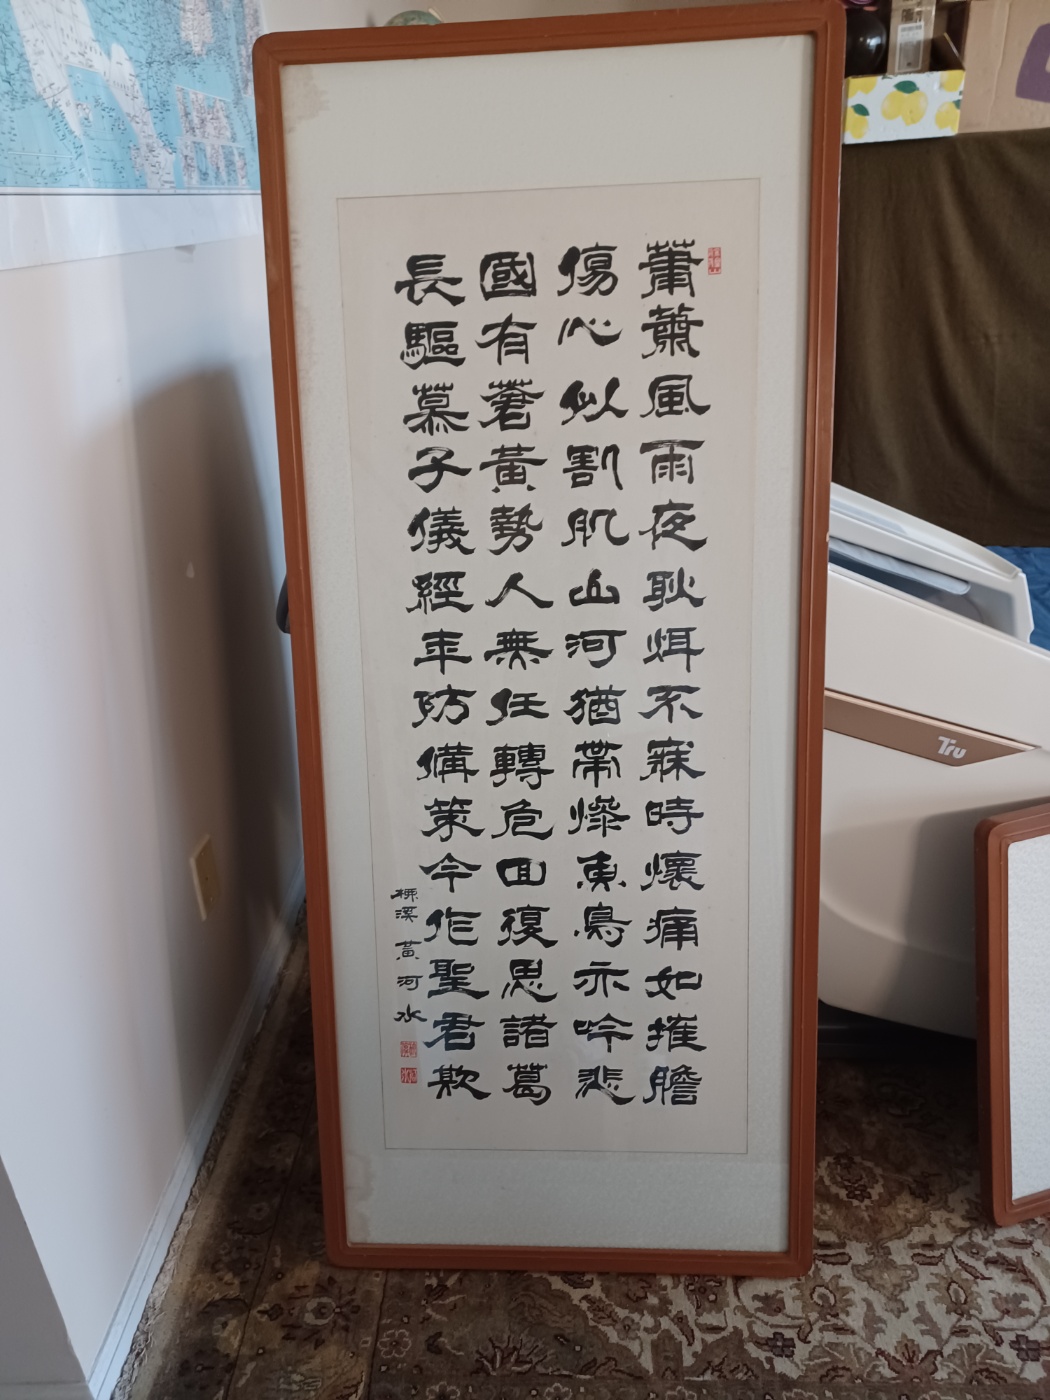 蕭蕭風雨夜耿耿不寐時懷痛如摧膽
傷心似割肌山河猶帶慘魚鳥亦吟悲
國有蒼黃勢人無任轉危回復思諸葛
長驅慕子儀經年防備策今作聖君欺
柳溪 黃河水
Tru